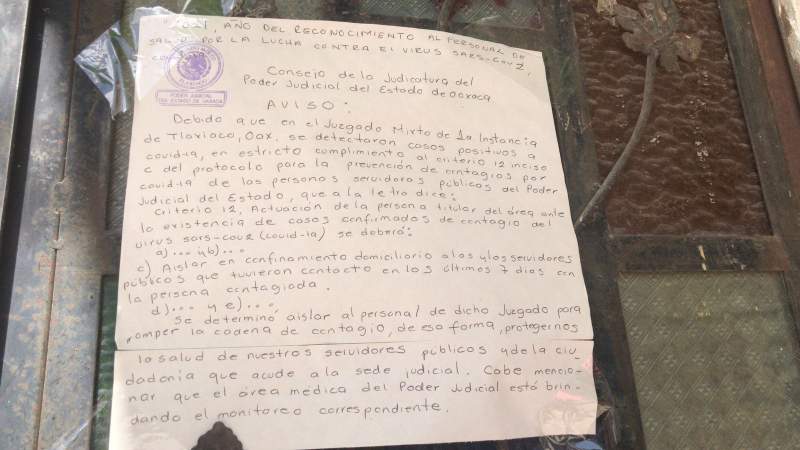 "2021, AÑO DEL RECONOCIMIENTO AL PERSONAL DE
SALUD, POR LA LUCHA CONTRA EL VIRUS SARS-COV2,
Consejo de la Judicatura del
Poder Judicial del Estado de Oaxaca
PODER JUDICIAL
DEL ESTADO DE OAXACA
AVISO:
Debido a que en el Juzgado Mixto de 1a Instancia
de Tlaxiaco, Oax, se detectaron casos positivos a
covid-19, en estricto cumplimiento al criterio 12 inciso
c del protocolo para la prevención de contagios por
covid-19 de las personas servidoras públicas del Poder
Judicial del Estado, que a la letra dice:
Criterio 12, Actuación de la persona titular del área ante
la existencia de casos confirmados de contagio del
virus sars-cov2 (covid-19) se deberá:
a)... y b)...
c) Aislar en confinamiento domiciliario a las y los servidores
públicos que tuvieron contacto en los últimos 7 dias con
la persona contagiada.
d)... y e)...
Se determinó, aislar al personal de dicho Juzgado para
romper la cadena de contagio, de esa forma, protegernos
la salud de nuestros servidores públicos y de la ciu-
dadania que acude a la sede judicial. Cabe mencio-
nar que el área médica del Poder Judicial está brin-
dando el monitoreo correspondiente.